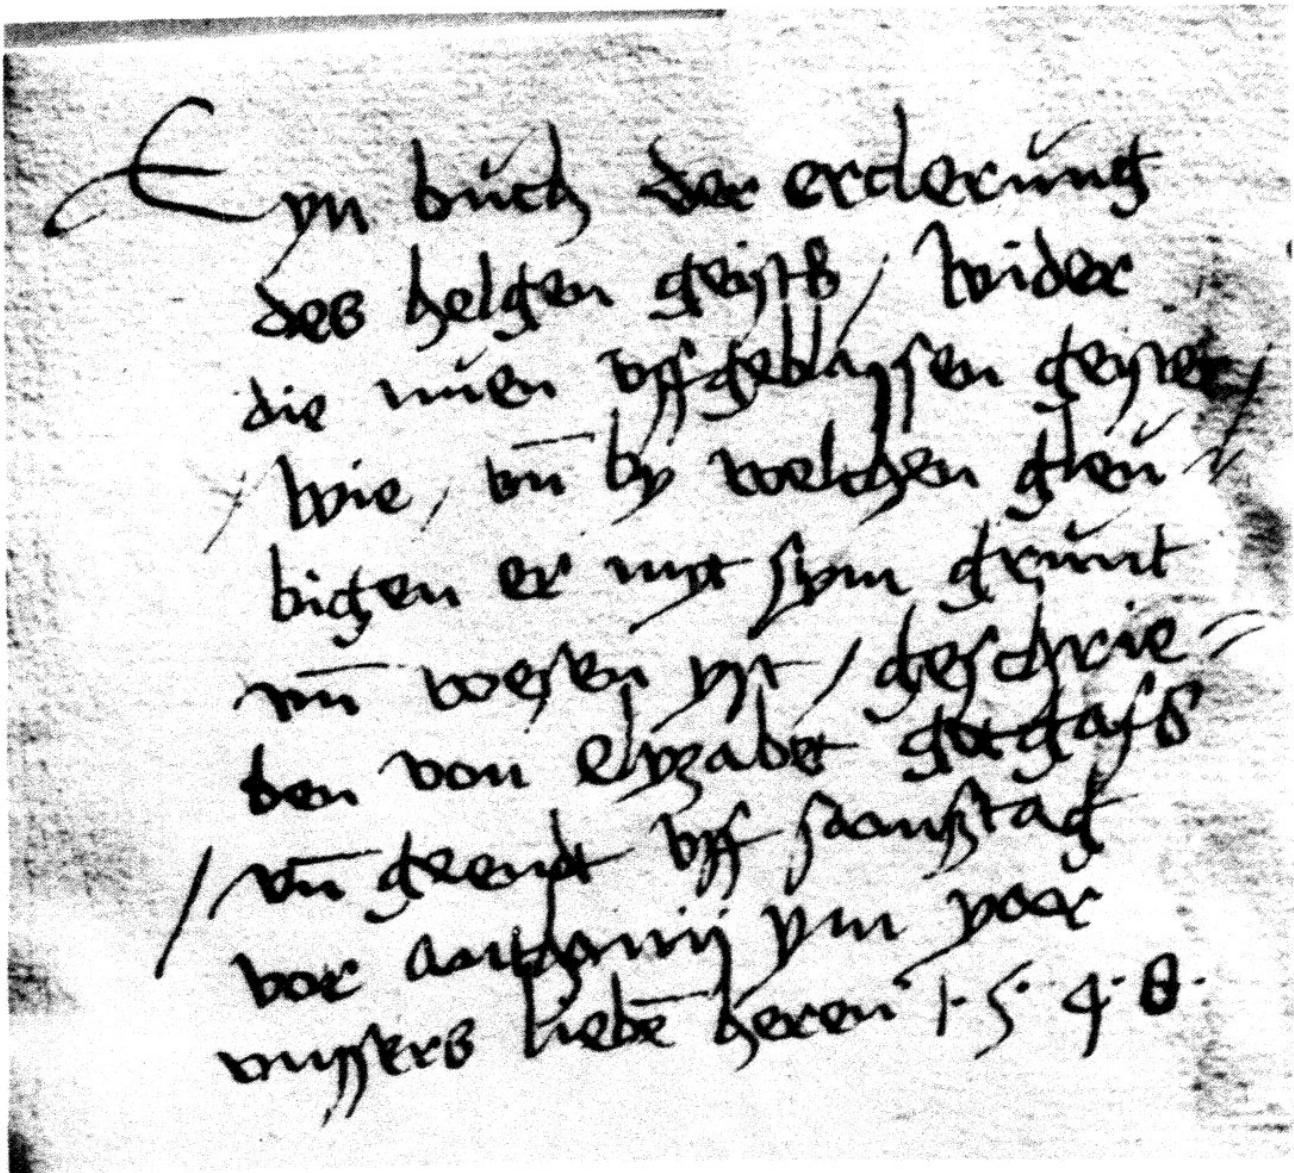 Eyn bůch der erclerůng
des helgen geystß / wider
die nüen vffgeblassen geyster /
/ wie / vn̄ by welchen gleü //
bigen er myt sym grünt
vn̄ wesen yst / geschrie =
ben von Elyzabet gotgaß
/ vn̄ geendt vff samßtag
vor anthonij ym yoar
vnssers liebē heren 1·5·4·8·